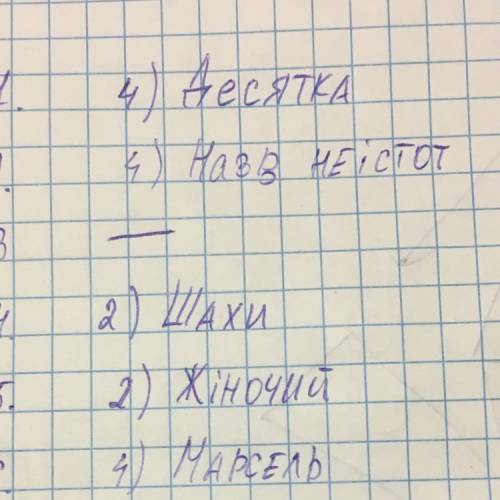 1. 4) Десятка
4) Назв неістот
3 —
4. 2) Шахи
5. 2) Жіночий
4) Марсель